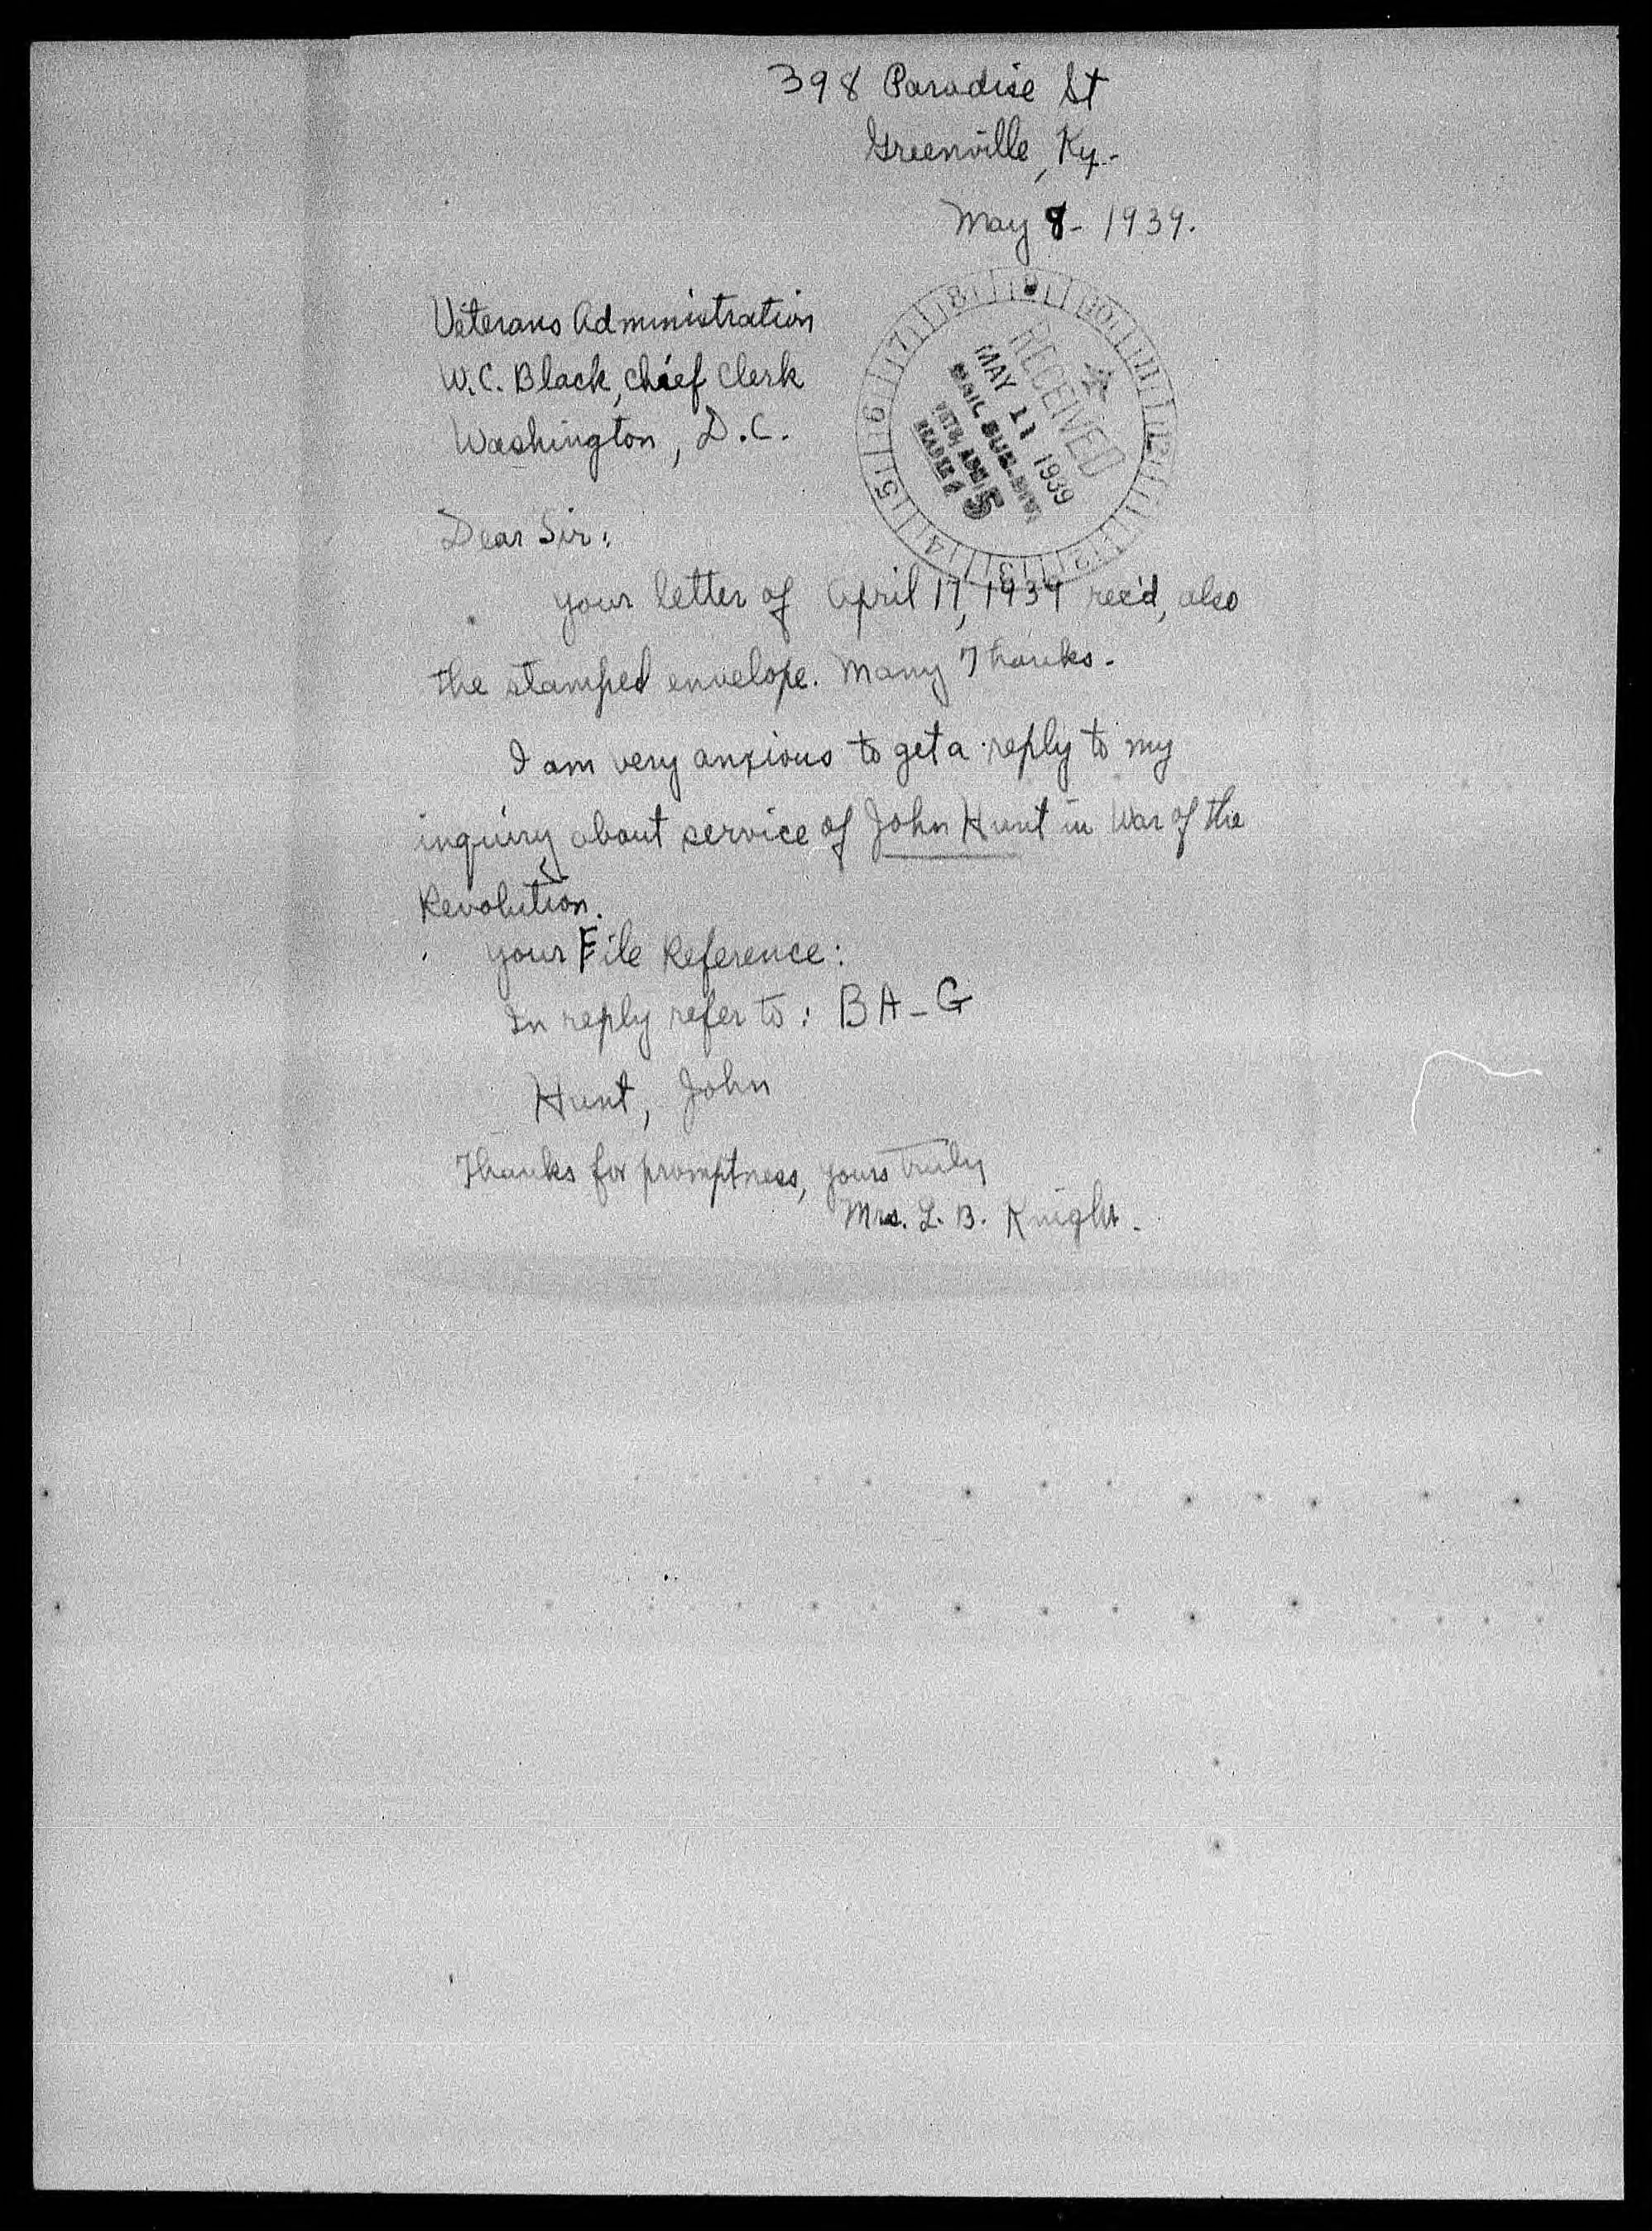 398 Paradise St
Greenville, Ky.
May 8 - 1939.
Veterans Administration
W. C. Black, Chief Clerk
Washington, D. C.
RECEIVED
MAY 11 1939
MAIL SUB-DIV.
VETS. ADM.
READER # 5
Dear Sir:
Your letter of April 17, 1939 rec'd, also
the stamped envelope. Many Thanks.
I am very anxious to get a reply to my
inquiry about service of John Hunt in War of the
Revolution.
Your File Reference:
In reply refer to: BA-G
Hunt, John
Thanks for promptness, yours truly
Mrs. L. B. Knight.